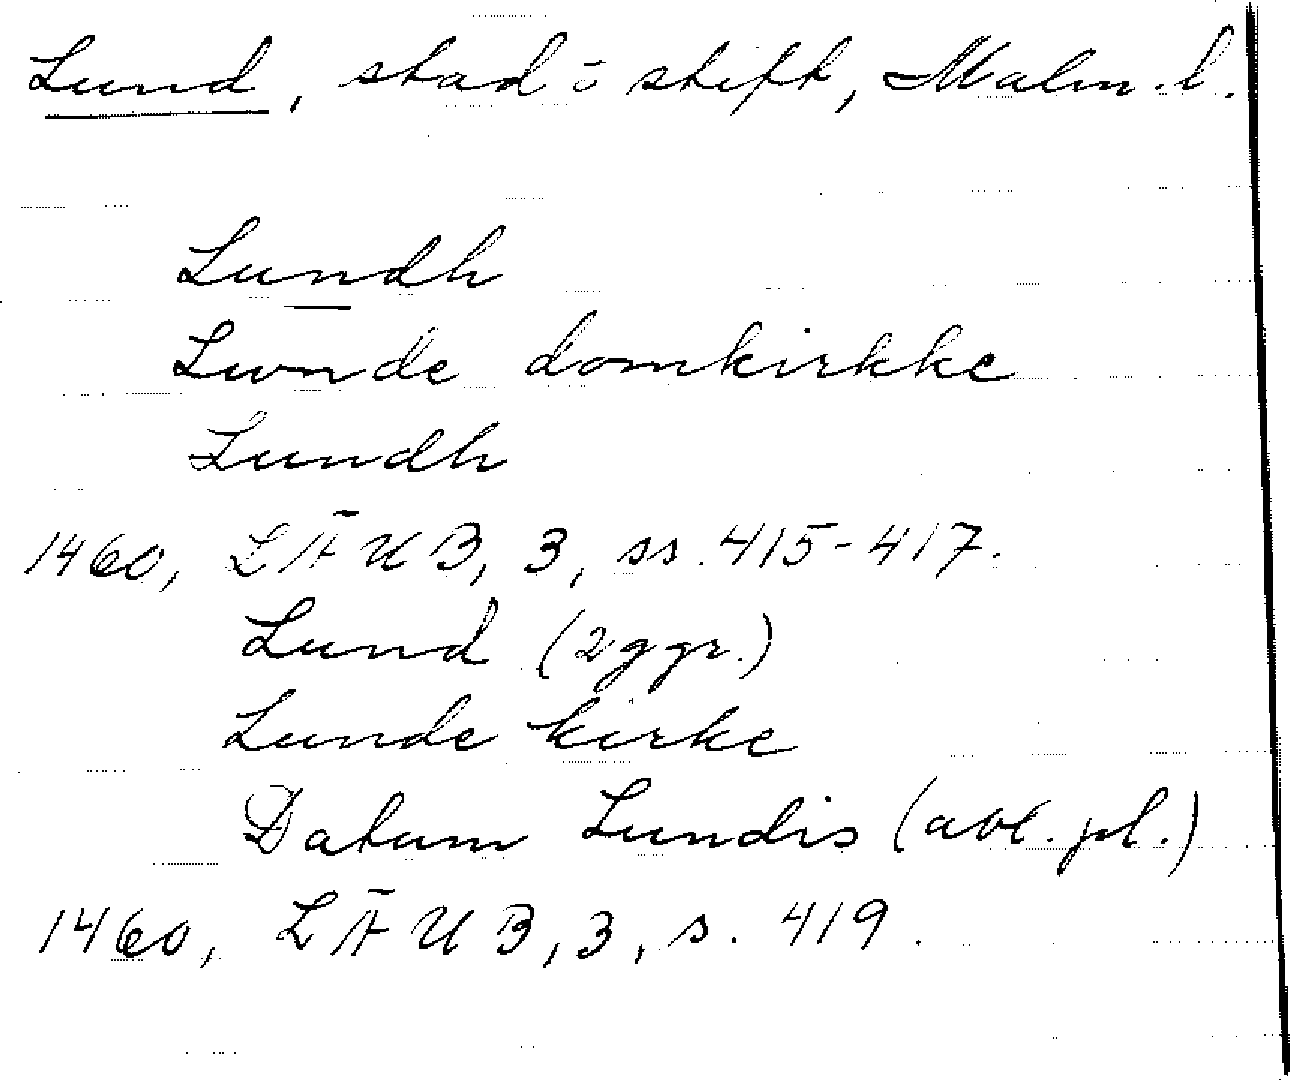 Lund, stad o stift, Malm. l.
Lundh
Lwnde domkirkke
Lundh
1460, LÄUB, 3, ss. 415-417.
Lund (2 ggr.)
Lunde kirke
Datum Lundis (abl. pl.)
1460, LÄUB, 3, s. 419.